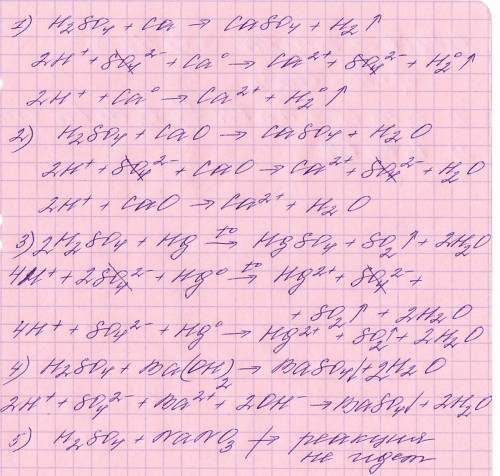 1) H₂SO₄ + Ca → CaSO₄ + H₂↑
2H⁺ + SO₄²⁻ + Ca⁰ → Ca²⁺ + SO₄²⁻ + H₂⁰↑
2H⁺ + Ca⁰ → Ca²⁺ + H₂⁰↑
2) H₂SO₄ + CaO → CaSO₄ + H₂O
2H⁺ + SO₄²⁻ + CaO → Ca²⁺ + SO₄²⁻ + H₂O
2H⁺ + CaO → Ca²⁺ + H₂O
3) 2H₂SO₄ + Hg →t° HgSO₄ + SO₂↑ + 2H₂O
4H⁺ + 2SO₄²⁻ + Hg⁰ →t° Hg²⁺ + SO₄²⁻ +
+ SO₂↑ + 2H₂O
4H⁺ + SO₄²⁻ + Hg⁰ → Hg²⁺ + SO₂↑ + 2H₂O
4) H₂SO₄ + Ba(OH)₂ → BaSO₄↓ + 2H₂O
2H⁺ + SO₄²⁻ + Ba²⁺ + 2OH⁻ → BaSO₄↓ + 2H₂O
5) H₂SO₄ + NaNO₃ ↛ реакция
не идет